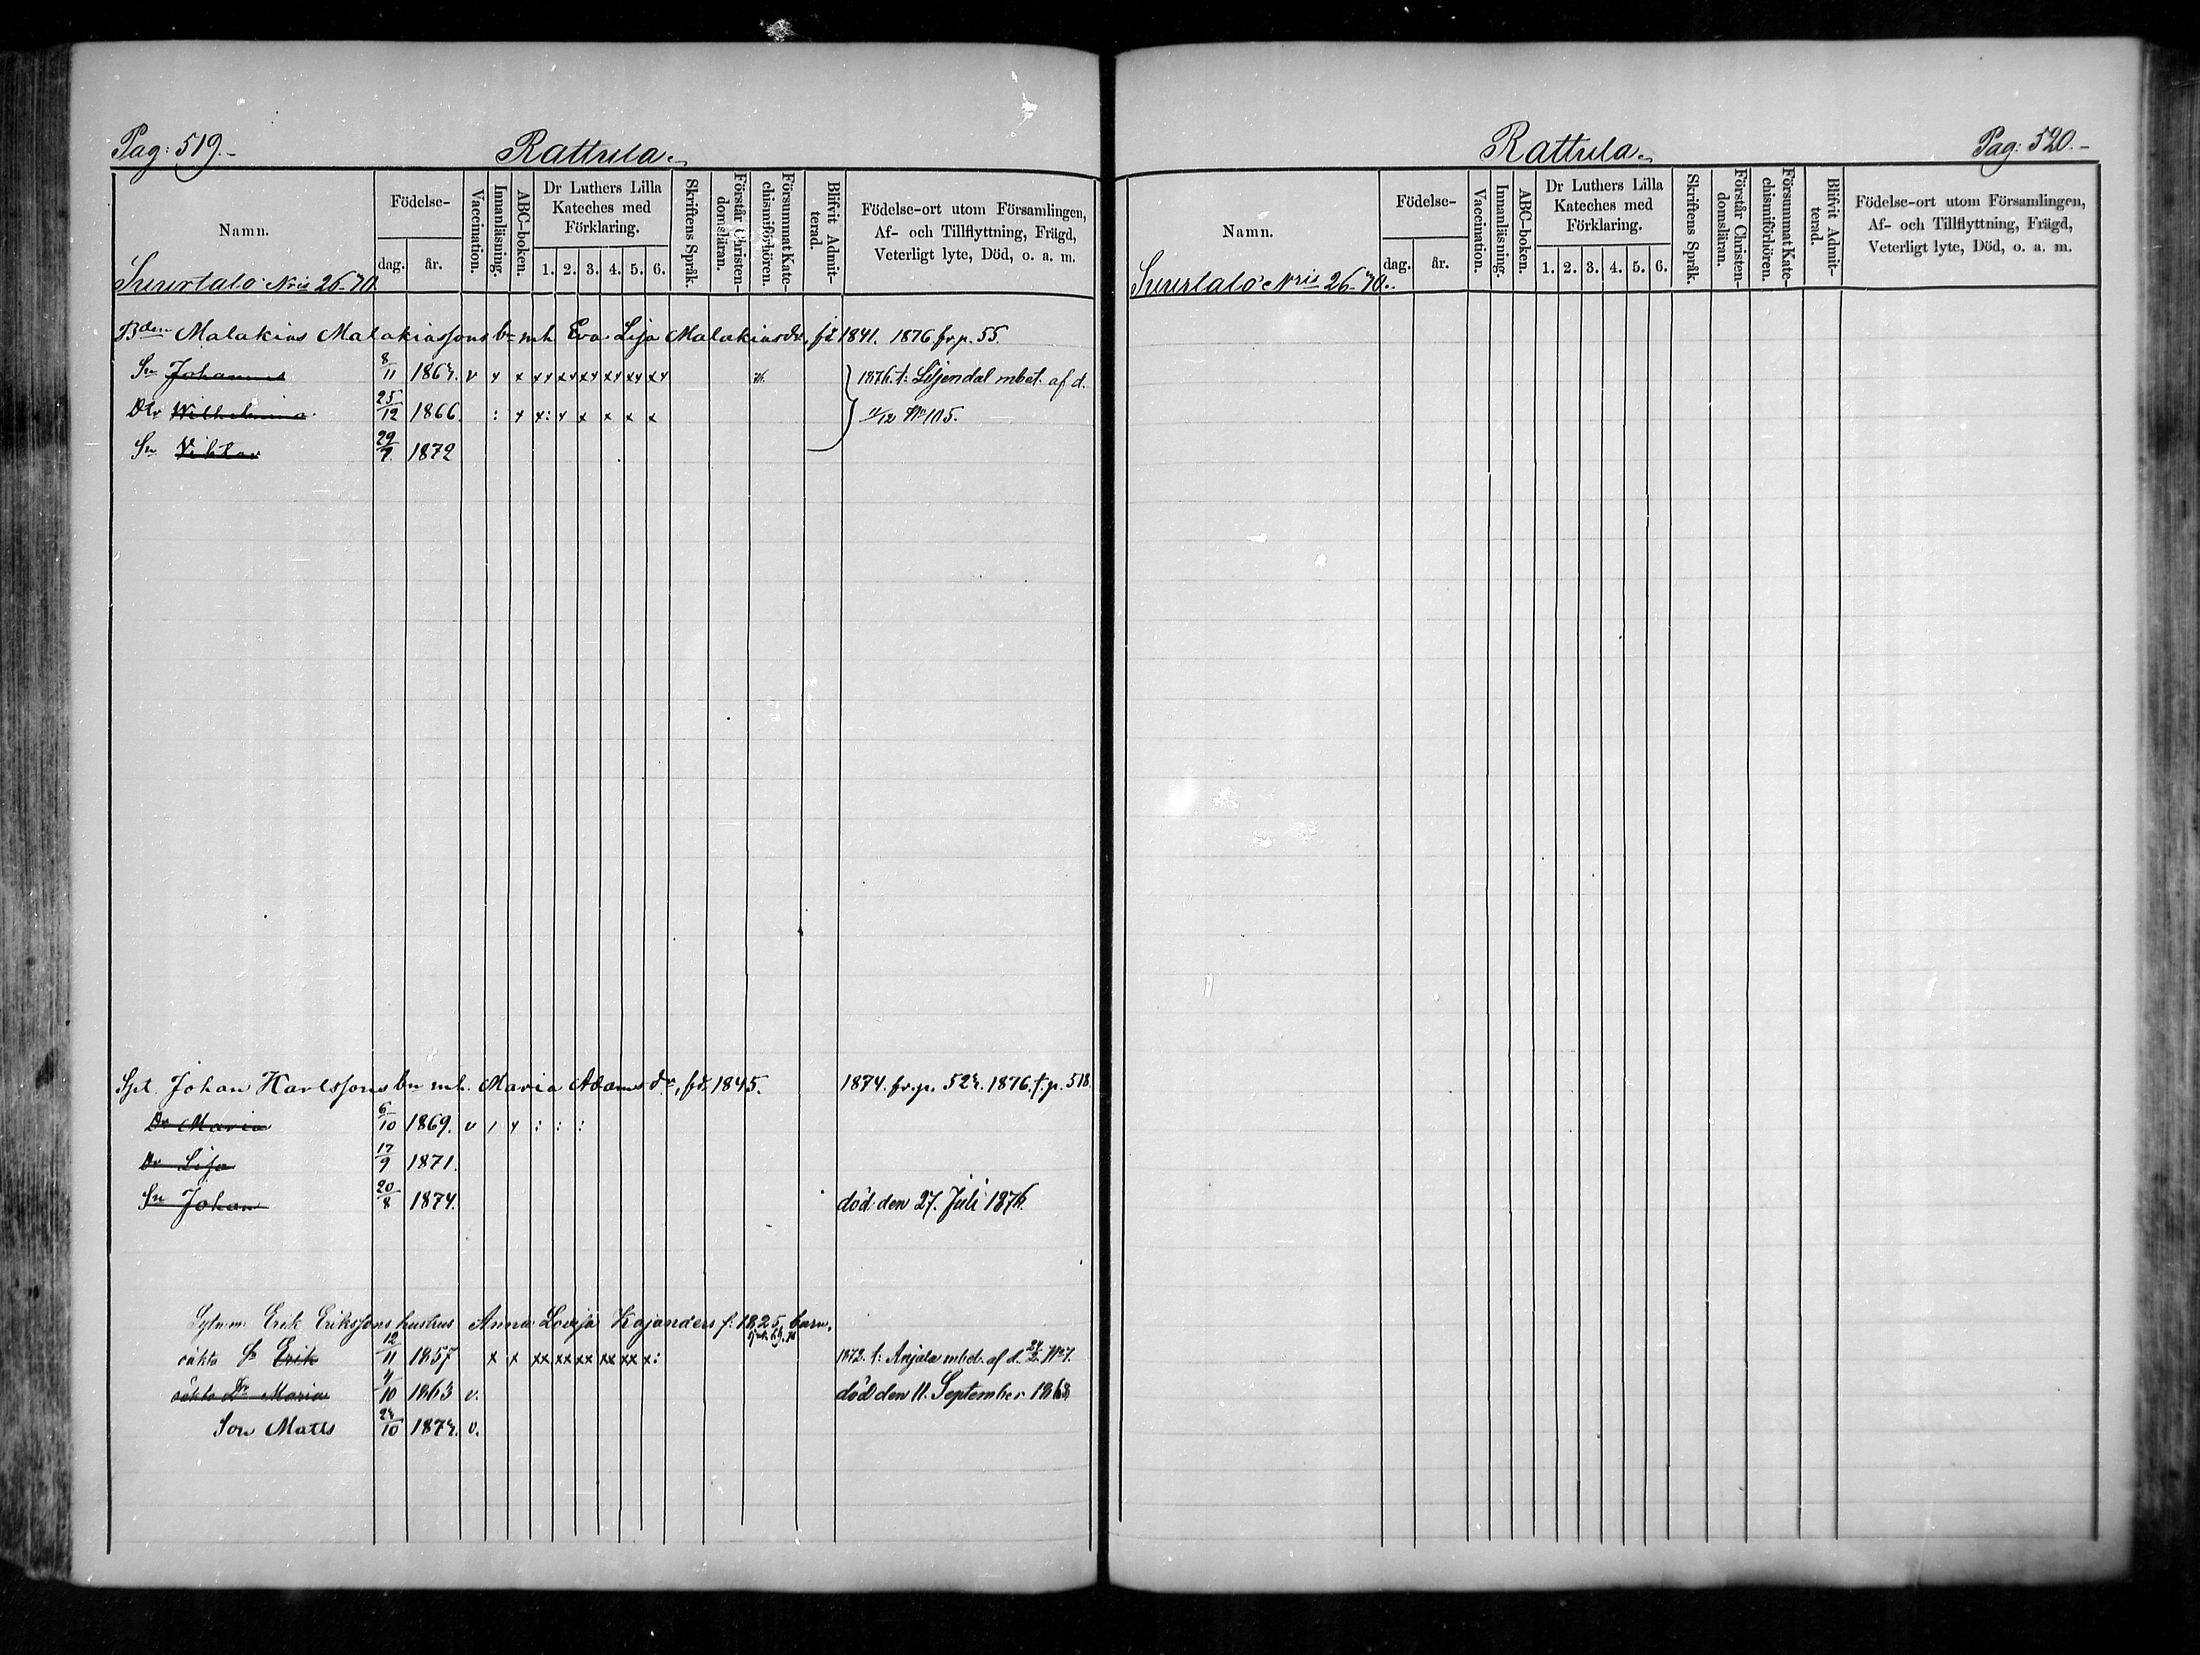 Pag: 519.-
Rattula.
Namn.
Födelse-
dag. år.
Vaccination.
Innanläsning.
ABC-boken.
Dr Luthers Lilla Kateches med Förklaring.
1. 2. 3. 4. 5. 6.
Skriftens Språk.
Förstår Christendomsläran.
Försummat Katechismiförhören.
Blifvit Admitterad.
Födelse-ort utom Församlingen,
Af- och Tillflyttning, Frägd,
Veterligt lyte, Död, o. a. m.
Suurtalo Nris 26-70.
Malakias Malakiassons bn mh. Eva Lisa Malakiasdr, fd 1841. 1876 fr. p. 55.
Sn Johannes 8/11 v x x xx xx xx xx xx xx 1876. t: Liljendal mbet. af d.
Dtr Wilhelmina 25/12 1866. : x x: x x x x x 11/12 No 105.
Sn Viktor 1872
Johan Karlssons bn mh. Maria Adamsdr, fd. 1845. 1874. fr. p. 1876. t. p. 518.
Dr Maria 6/10 1869. v / x : : :
Dr Lisa 17/9 1871.
Sn Johan 20/8 1874. död den 27. Juli 1876.
Erik Erikssons hustrus Anna Lovisa Kajanders f: 1825, barn,
oäkta Sn Erik 12/11 1857 x x xx xx xx xx xx x: 1872. t: Anjala mbet. af d.
oäkta Dr Maria 4/10 1863 v. död den 11. September 1868
Son Matts v.
Rattula.
Pag: 520.-
Namn.
Födelse-
dag. år.
Vaccination.
Innanläsning.
ABC-boken.
Dr Luthers Lilla Kateches med Förklaring.
1. 2. 3. 4. 5. 6.
Skriftens Språk.
Förstår Christendomsläran.
Försummat Katechismiförhören.
Blifvit Admitterad.
Födelse-ort utom Församlingen,
Af- och Tillflyttning, Frägd,
Veterligt lyte, Död, o. a. m.
Suurtalo Nris 26-70.